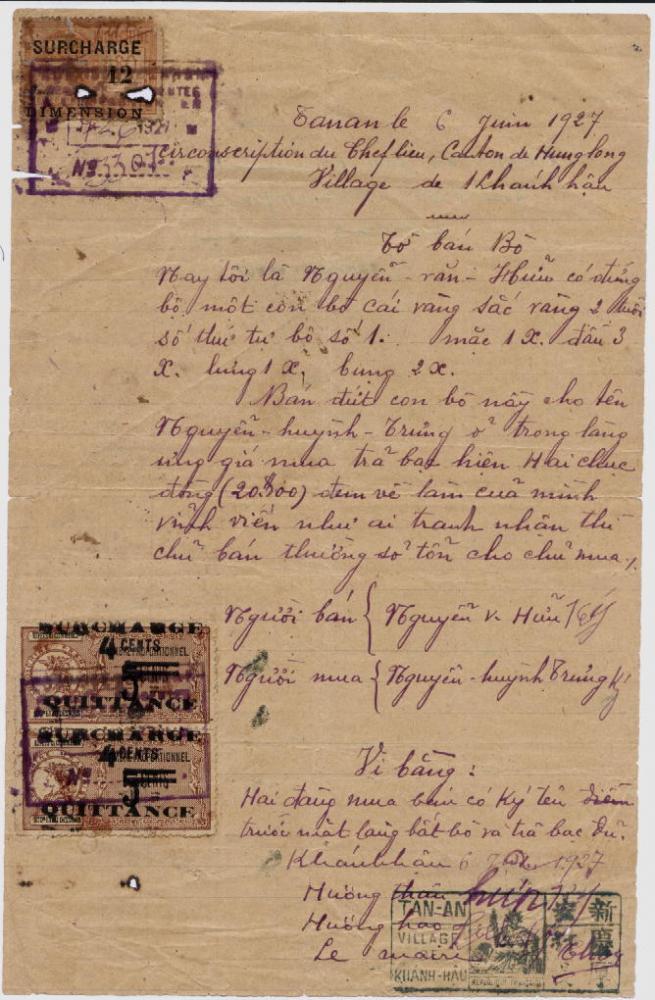 SURCHARGE
12
DIMENSION
1927
Nº 3307
Tanan le 6 Juin 1927
Circonscription du Chef lieu, Canton de Hung long
Village de Khánh hậu
Tờ bán Bò
Nay tôi là Nguyễn-văn-Hữu có đứng
bộ một con bò cái vàng sắc vàng 2 tuổi
số thứ tự bộ số 1. mặc 1 X. đầu 3
X. lưng 1 X, bụng 2 X.
Bán đứt con bò nầy cho tên
Nguyễn-huỳnh-Trưng ở trong làng
ưng giá mua trả bạc hiện Hai chục
đồng (20$00) đem về làm của mình
vĩnh viễn như ai tranh nhận thì
chủ bán thường sở tổn cho chủ mua./.
Người bán { Nguyễn v. Hữu Ký
Người mua { Nguyễn-huỳnh Trưng Ký
SURCHARGE
4 CENTS
5
QUITTANCE
SURCHARGE
4 CENTS
Nº
5
QUITTANCE
Vi bằng:
Hai đàng mua bán có Ký tên điểm
trước mặt làng bắt bò và trả bạc đủ.
Khánhhậu 6 1927
Hương thân
Hương hào
Le maire
TAN-AN
VILLAGE
KHÁNH-HÂU
新